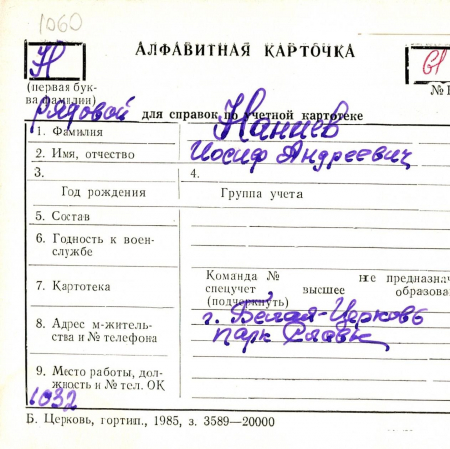 1060
АЛФАВИТНАЯ КАРТОЧКА
Н
61
(первая бук-
ва фамилии)
№
рядовой
для справок по учетной картотеке
1. Фамилия Наниев
2. Имя, отчество Иосиф Андреевич
3. 4.
Год рождения Группа учета
5. Состав
6. Годность к воен-
службе
7. Картотека
Команда № не предназнач
спецучет, высшее образова
(подчеркнуть)
8. Адрес м-житель-
ства и № телефона
г. Белая-Церковь
парк Славы
9. Место работы, дол-
жность и № тел. ОК
1032
Б. Церковь, гортип., 1985, з. 3589—20000